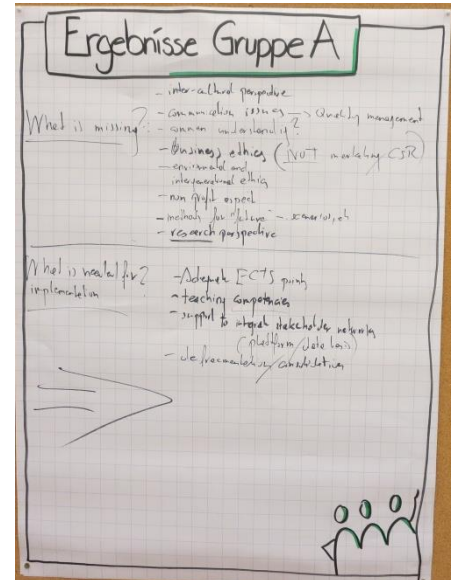 Ergebnisse Gruppe A
What is missing?:
- inter-cultural perspective
- communication issues → Quality management
- common understanding?
- Business ethics (NOT marketing CSR)
- environmental and
intergenerational ethics
- non profit aspect
- methods for "future" - scenarios,
- research perspective
What is needed for?
implementation
- Adequate ECTS points
- teaching competencies
- support to integrate stakeholder networks
(plattform / data basis)